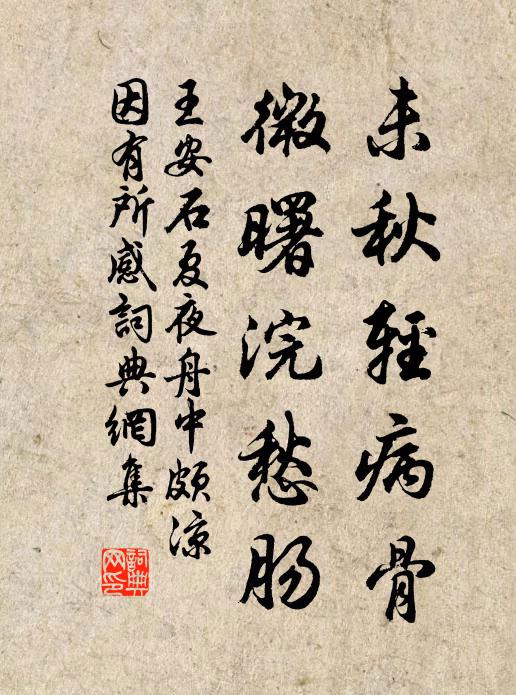 未秋輕病骨
微曙浣愁肠
王安石夏夜舟中颇凉
因有所感詞典網集
詞典網印